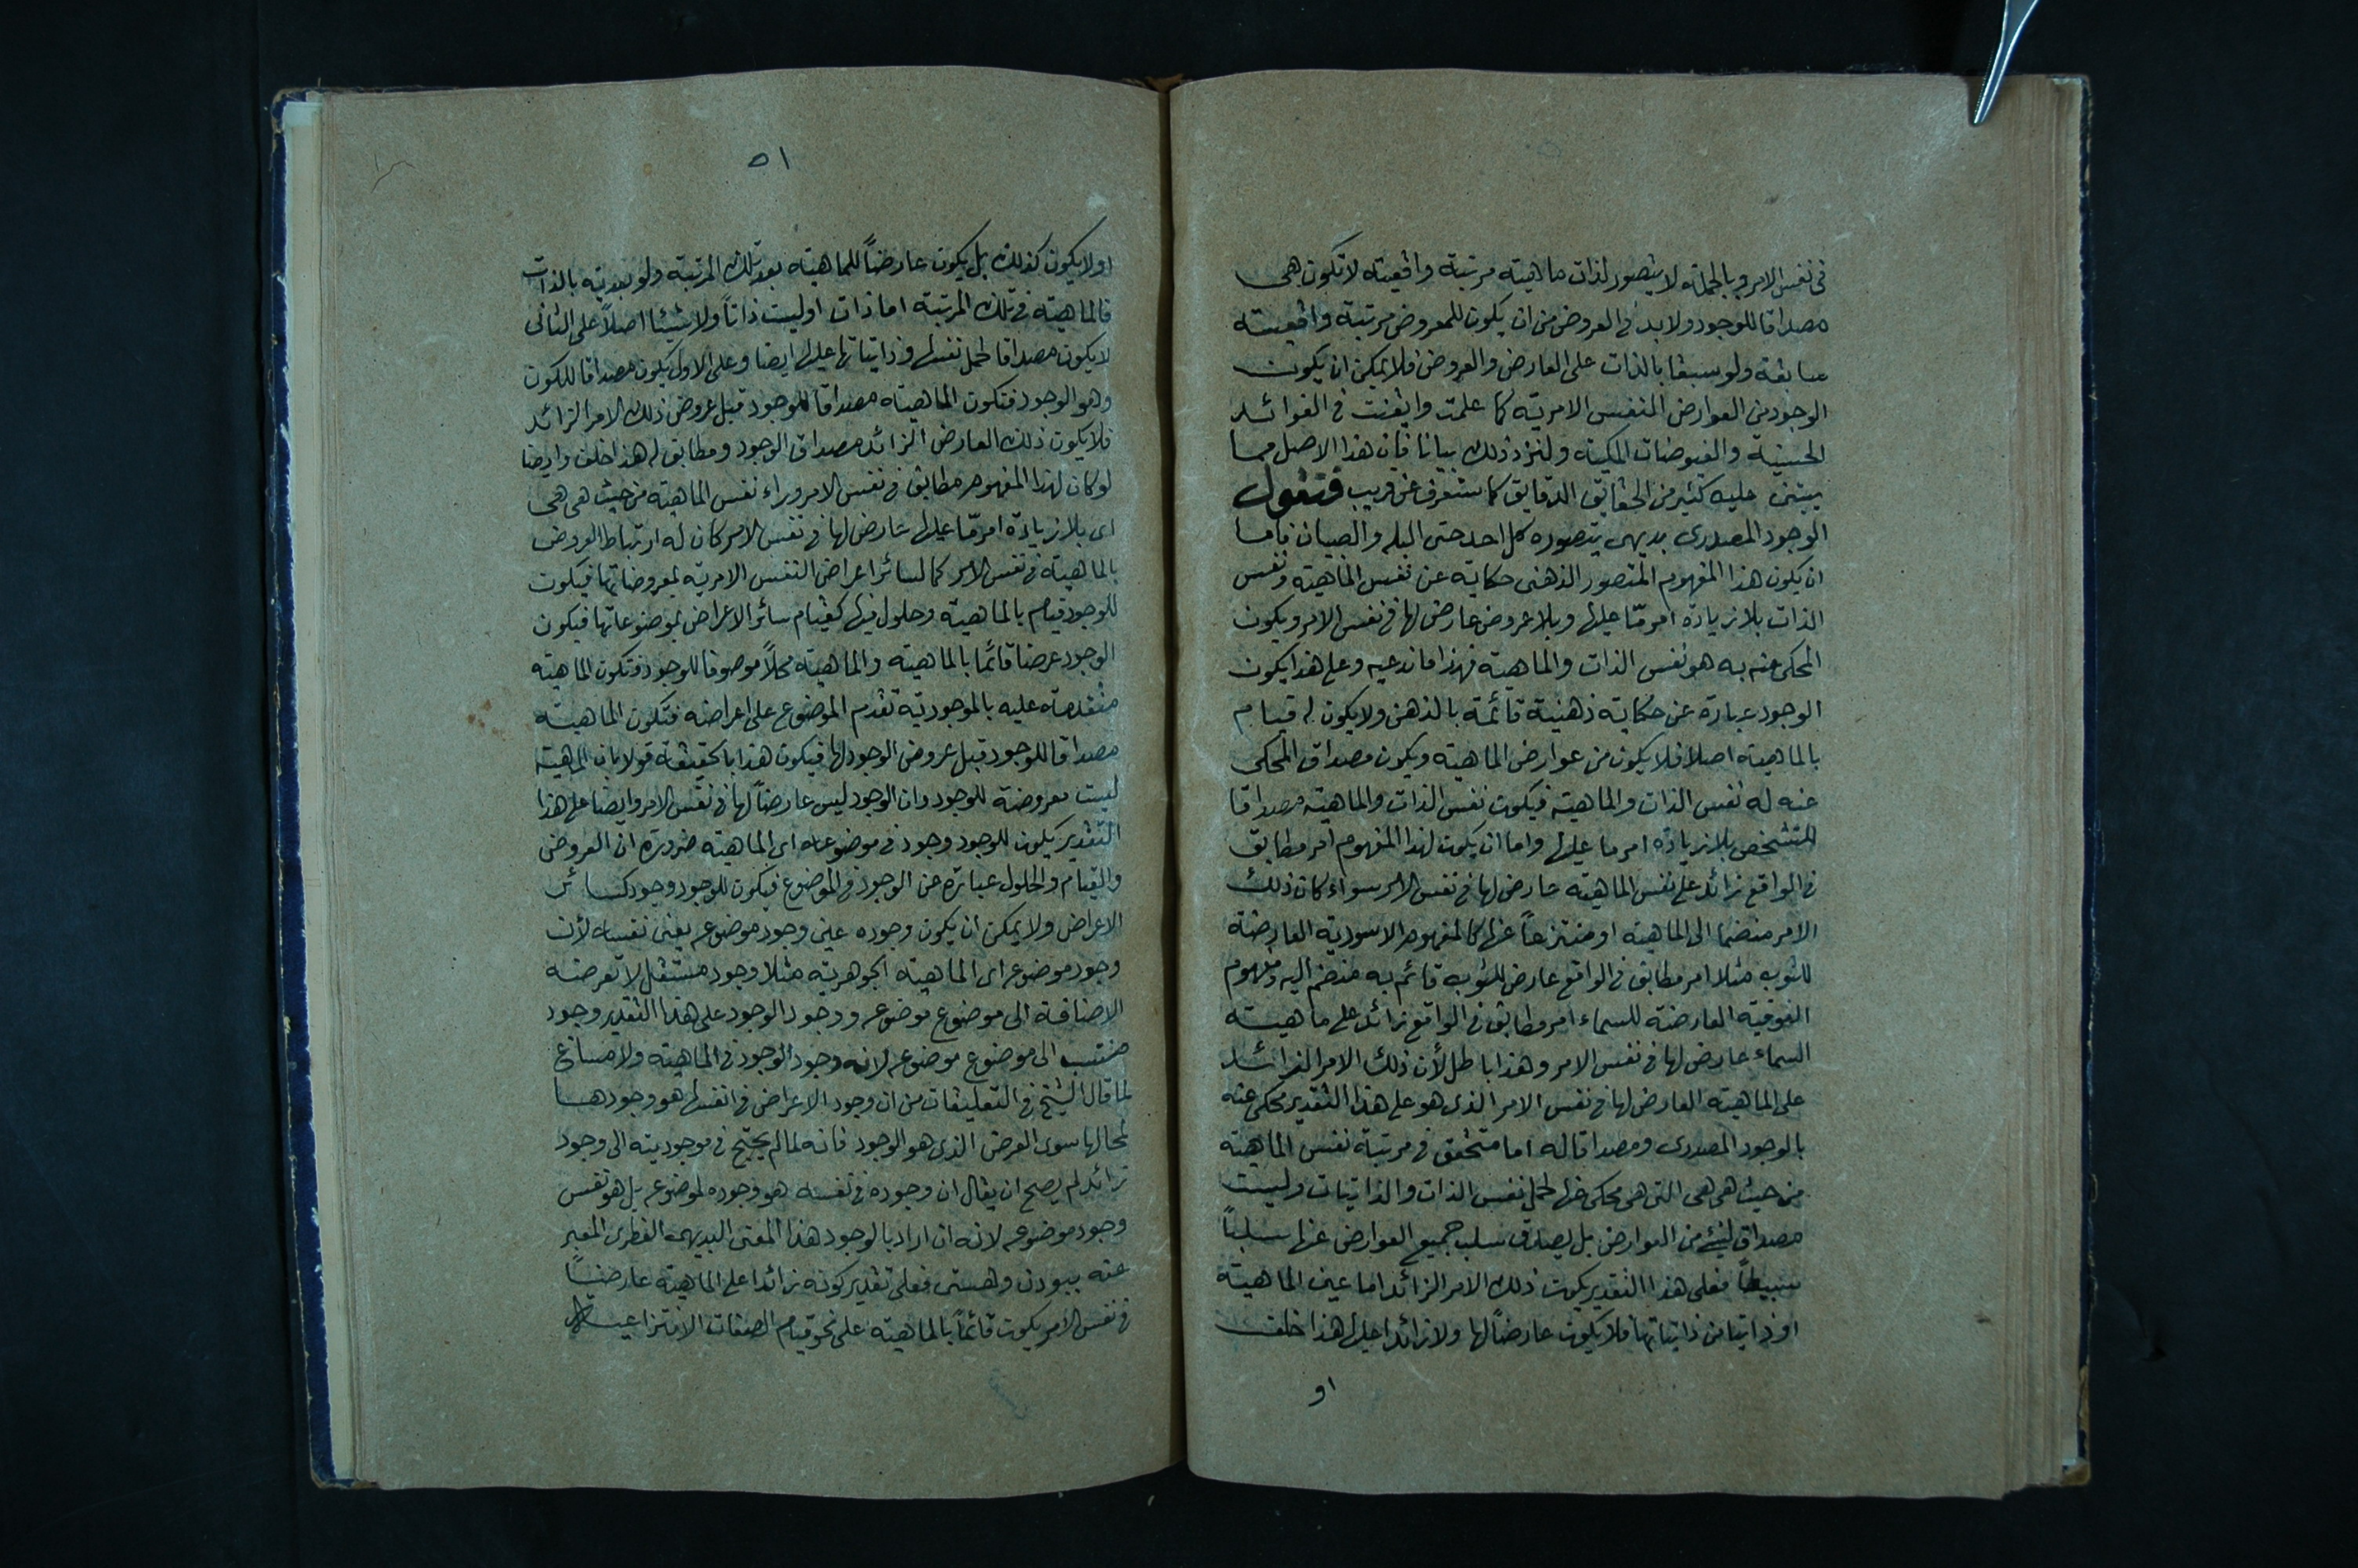 فى نفس الامر وبالجملة لا يتصور لذات ماهيته مرتبة واقعية لا تكون هى
مصداقا للوجود ولا بد فى العروض من ان يكون للمعروض مرتبة واقعيته
سابقة ولو سبقا بالذات على العارض والعروض فلا يمكن ان يكون
الوجود من العوارض النفس الامريّة كما علمت وايقنت فى الفوائد
الحسنية والفيوضات المكية ولنزد ذلك بيانا فان هذا الاصل مما
يبتنى عليه كثير من الحقايق الدقايق كما ستعرف عن قريب فنقول
الوجود المصدرى بديهى يتصوره كل احد حتى البله والصبيان فاما
ان يكون هذا المفهوم المتصور الذهنى حكاية عن نفس الماهيته ونفس
الذات بلا زيادة امر مّا عليها وبلا عروض عارض لها فى نفس الامر ويكون
المحكى عنه به هو نفس الذات والماهية فهذا ما ندعيه وعلى هذا يكون
الوجود عبارة عن حكاية ذهنية قائمة بالذهن ولا يكون له قيام
بالماهيته اصلا فلا يكون من عوارض الماهيته ويكون مصداق المحكى
عنه له نفس الذات والماهية فيكون نفس الذات والماهية مصداقا
للتشخص بلا زيادة امر ما عليها واما ان يكون لهذا المفهوم امر مطابق
فى الواقع زائد على نفس الماهيته عارض لها فى نفس الامر سواء كان ذلك
الامر منضما الى الماهيته او منتزعاً عنها كالمفهوم الاسودية العارضة
للثوب مثلا امر مطابق فى الواقع عارض للثوب قائم به منضم اليه ومفهوم
الفوقية العارضة للسماء امر مطابق فى الواقع زائد على ماهيته
السماء عارض لها فى نفس الامر وهذا باطل لأن ذلك الامر الزائد
على الماهيته العارض لها فى نفس الامر الذى هو على هذا التقدير محكى عنه
بالوجود المصدرى ومصداقا له اما متحقق فى مرتبة نفس الماهيته
من حيث هى هى التى هى محكى عنها لحمل نفس الذات والذاتيات وليست
مصداق لشئ من العوارض بل يصدق سلب جميع العوارض عنها سلبا
بسيطاً فعلى هذا التقدير يكون ذلك الامر الزائد اما عين الماهيته
او ذاتيا من ذاتياتها فلا يكون عارضاً لها ولا زائدا عليها هذا خلف
او
٥١
او لا يكون كذلك بل يكون عارضاً للماهيته بعد تلك المرتبة ولو بعديته بالذات
فالماهيته فى تلك المرتبة اما ذات او ليست ذاتاً ولا شيئا اصلاً على الثانى
لا يكون مصداقا لحمل نفسها وذاتياتها عليها ايضا وعلى الاول يكون مصداقا للكون
وهو الوجود فتكون الماهيته مصداقا للوجود قبل عروض ذلك الامر الزائد
فلا يكون ذلك العارض الزائد مصداق الوجود ومطابق له هذا خلف وايضا
لو كان لهذا المفهوم مطابق فى نفس الامر وراء نفس الماهيته من حيث هى هى
اى بلا زيادة امر مّا عليها عارض لها فى نفس الامر كان له ارتباط العروض
بالماهيته فى نفس الامر كما لسائر اعراض النفس الامرية لمعروضاتها فيكون
للوجود قيام بالماهيته وحلول فيها كقيام سائر الاعراض بموضوعاتها فيكون
الوجود عرضا قائما بالماهيته والماهيته محلاً موصوفا للوجود فتكون الماهيته
متقدمة عليه بالموجودية تقدم الموضوع على اعراضه فتكون الماهيته
مصداقا للوجود قبل عروض الوجود لها فيكون هذا بالحقيقة قولا بان الماهيته
ليست معروضة للوجود وان الوجود ليس عارضاً لها فى نفس الامر وايضا على هذا
التقدير يكون للوجود وجود فى موضوعه اى الماهيته ضرورة ان العروض
والقيام والحلول عبارة عن الوجود فى الموضوع فيكون للوجود وجود كسائر
الاعراض ولا يمكن ان يكون وجوده عين وجود موضوعه يعنى نفسه لأن
وجود موضوعه اى الماهيته الجوهريته مثلا وجود مستقل لا تعرضه
الاضافة الى موضوع موضوعه ووجود الوجود على هذا التقدير وجود
منتسب الى موضوع موضوعه لانه وجود الوجود فى الماهيته ولا مساغ
لما قال الشيخ فى التعليقات من ان وجود الاعراض فى انفسها هو وجودها
لمحالها سوى العرض الذى هو الوجود فانه لما لم يحتج فى موجوديته الى وجود
زائد لم يصح ان يقال ان وجوده فى نفسه هو وجوده لموضوعه بل هو نفس
وجود موضوعه لانه ان اراد بالوجود هذا المعنى البديهى الفطرى المعبر
عنه ببودن وهستى فعلى تقدير كونه زائدا على الماهيته عارضاً
فى نفس الأمر يكون قائماً بالماهيته على نحو قيام الصفات الانتزاعية